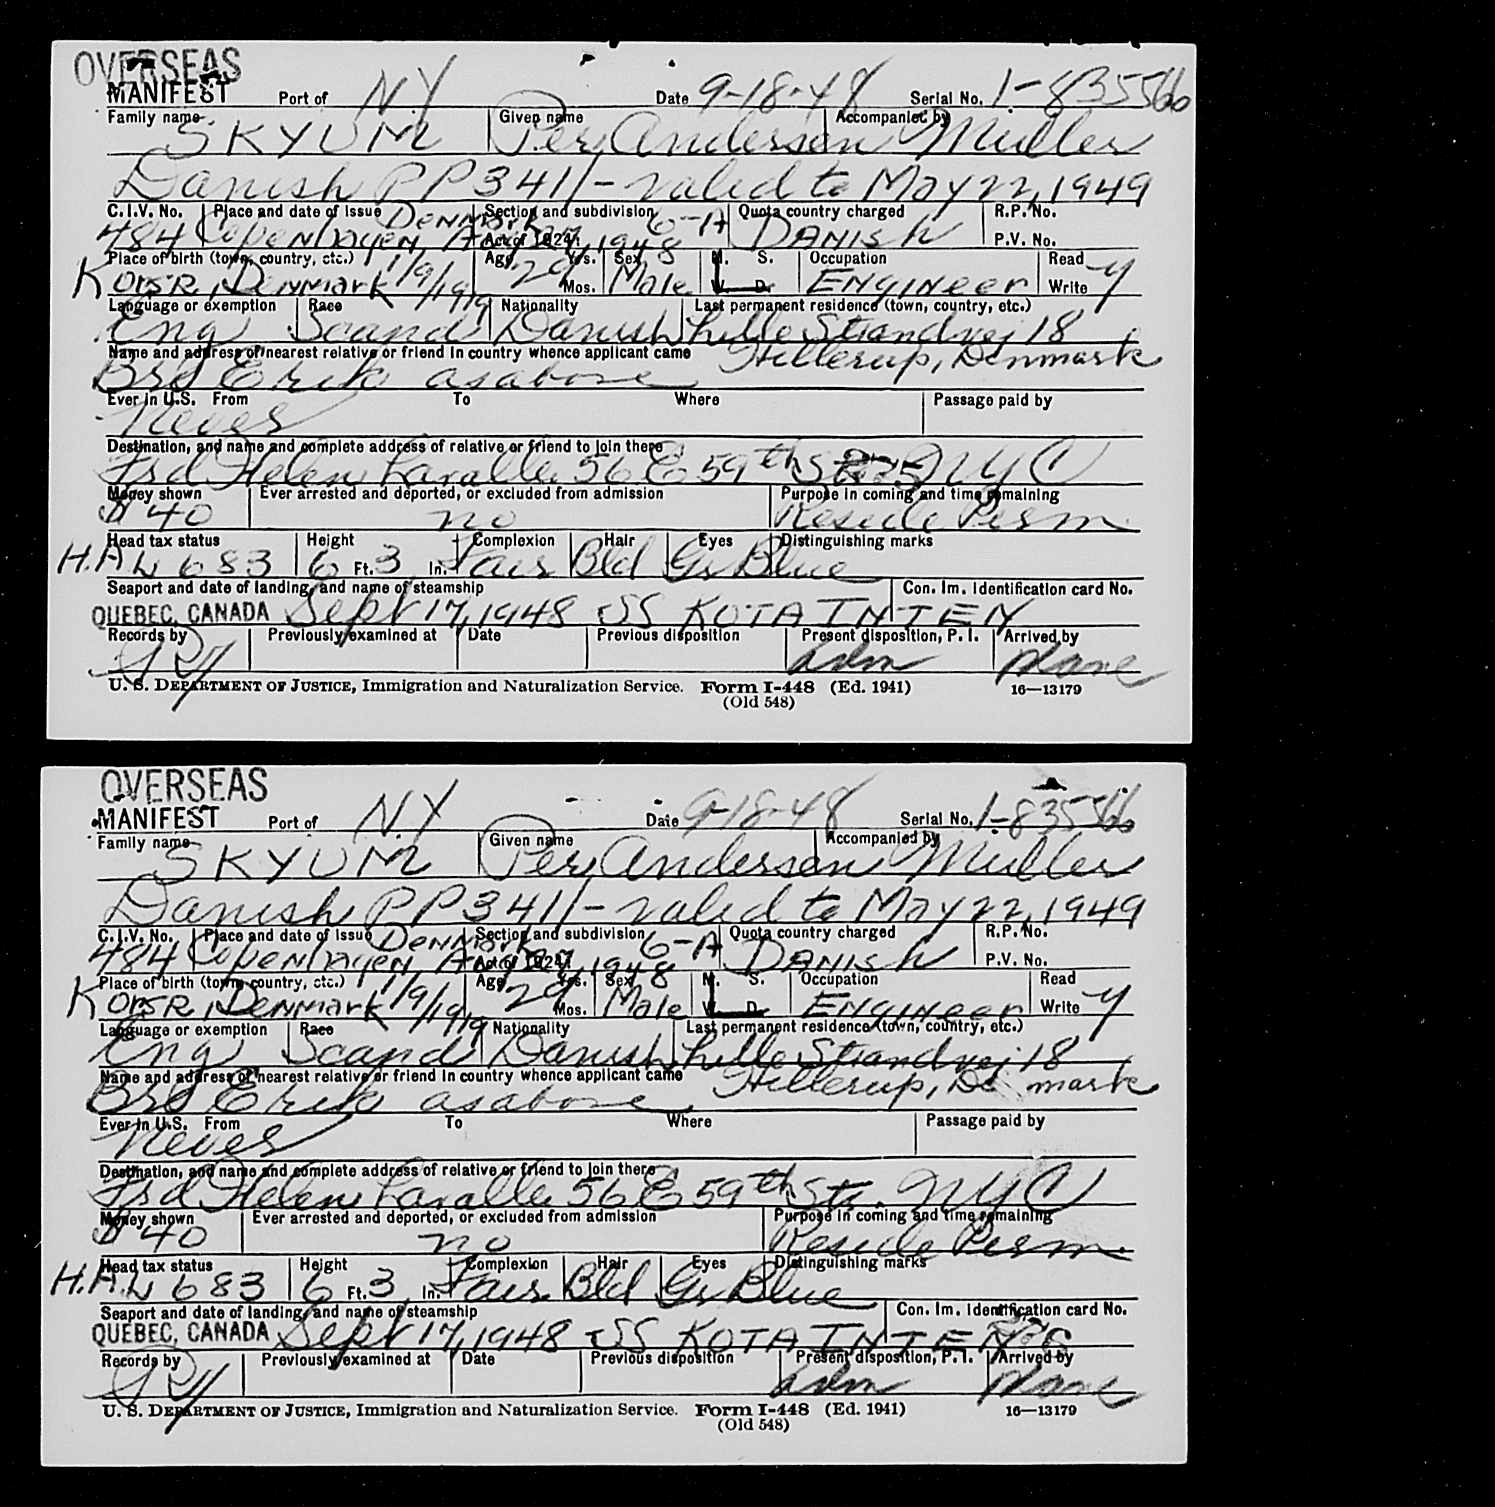 OVERSEAS
MANIFEST Port of N.Y Date 9-18-48 Serial No. 1-835566
Family name Given name Accompanied by
SKYUM Per Andersen Muller
Danish PP 3411 - valid to May 22, 1949
C.I.V. No. Place and date of issue Section and subdivision 6-A Quota country charged R.P. No.
484 Copenhagen, Denmark Act of 1924 1948 DANISH P.V. No.
Place of birth (town, country, etc.) Age Yrs. Sex M. S. Occupation Read
Korsør, Denmark 1/9/1919 29 Mos. Male W. D. Engineer Write y
Language or exemption Race Nationality Last permanent residence (town, country, etc.)
Eng Scand Danish Lille Strandvej 18
Name and address of nearest relative or friend in country whence applicant came Hellerup, Denmark
Bro Erik as above
Ever in U.S. From To Where Passage paid by
Never
Destination, and name and complete address of relative or friend to join there
Frd Helen Lavalle 56 E 59th St. NYC
Money shown Ever arrested and deported, or excluded from admission Purpose in coming and time remaining
$40 no Reside Perm
Head tax status Height Complexion Hair Eyes Distinguishing marks
H.A. 683 6 Ft. 3 In. Fair Bld Gr Blue
Seaport and date of landing, and name of steamship Con. Im. Identification card No.
QUEBEC, CANADA Sept 17, 1948 SS KOTA INTEN
Records by Previously examined at Date Previous disposition Present disposition, P. I. Arrived by
adm plane
U. S. DEPARTMENT OF JUSTICE, Immigration and Naturalization Service. Form I-448 (Ed. 1941) 16—13179
(Old 548)
OVERSEAS
MANIFEST Port of N.Y Date 9-18-48 Serial No. 1-835566
Family name Given name Accompanied by
SKYUM Per Andersen Muller
Danish PP 3411 - valid to May 22, 1949
C.I.V. No. Place and date of issue Section and subdivision 6-A Quota country charged R.P. No.
484 Copenhagen, Denmark Act of 1924 1948 DANISH P.V. No.
Place of birth (town, country, etc.) Age Yrs. Sex M. S. Occupation Read
Korsør, Denmark 1/9/1919 29 Mos. Male W. D. Engineer Write y
Language or exemption Race Nationality Last permanent residence (town, country, etc.)
Eng Scand Danish Lille Strandvej 18
Name and address of nearest relative or friend in country whence applicant came Hellerup, Denmark
Bro Erik as above
Ever in U.S. From To Where Passage paid by
Never
Destination, and name and complete address of relative or friend to join there
Frd Helen Lavalle 56 E 59th St. NYC
Money shown Ever arrested and deported, or excluded from admission Purpose in coming and time remaining
$40 no Reside Perm
Head tax status Height Complexion Hair Eyes Distinguishing marks
H.A. 683 6 Ft. 3 In. Fair Bld Gr Blue
Seaport and date of landing, and name of steamship Con. Im. Identification card No.
QUEBEC, CANADA Sept 17, 1948 SS KOTA INTEN
Records by Previously examined at Date Previous disposition Present disposition, P. I. Arrived by
adm plane
U. S. DEPARTMENT OF JUSTICE, Immigration and Naturalization Service. Form I-448 (Ed. 1941) 16—13179
(Old 548)